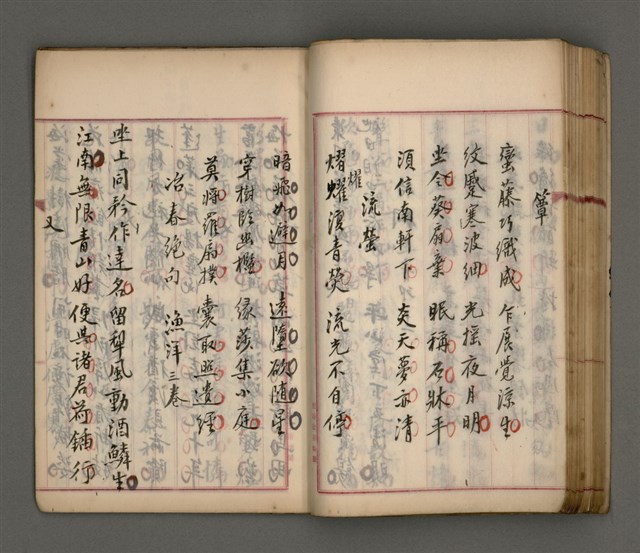 簟
蛮藤巧織成 乍展覺涼生
紋蹙寒波細 光搖夜月明
坐令葵扇棄 眠稱石牀平
須信南軒下 炎天夢亦清
流螢
熠耀濕青熒 流光不自停
耀
暗飛如避月 遠墮欲隨星
穿樹臨幽檻 緣莎集小庭
莫將羅扇撲 囊取照遺經
冶春絕句 漁洋三卷
坐上同矜作達名 留犁風動酒鱗生
江南無限青山好 便與諸君荷鍤行
又